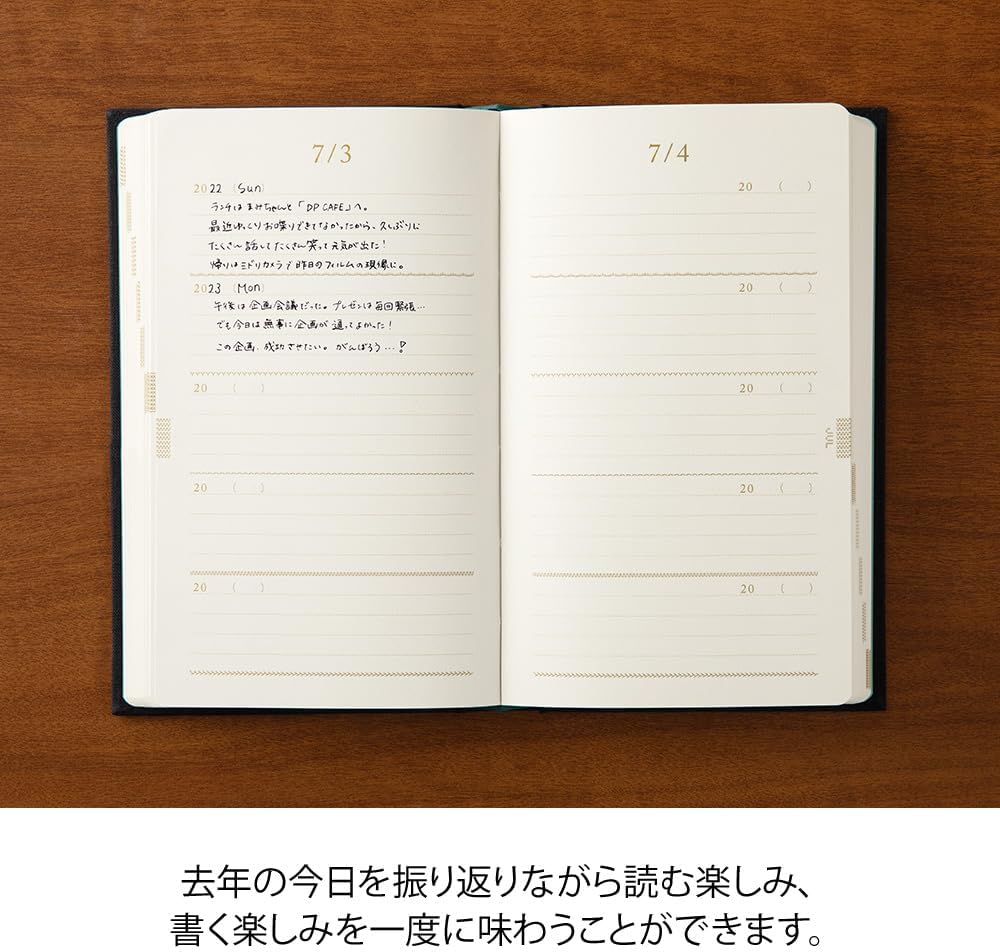 7/3
2022 (Sun)
ランチはまみちゃんと「DP CAFE」へ。
最近ゆっくりお喋りできてなかったから、久しぶりに
たくさん話してたくさん笑って元気が出た!
帰りはミドリカメラで昨日のフィルムの現像に。
2023 (Mon)
午後は企画会議だった。プレゼンは毎回緊張…
でも今日は無事に企画が通ってよかった!
この企画、成功させたい。がんばろう…!
20 ( )
20 ( )
20 ( )
7/4
20 ( )
20 ( )
20 ( )
20 ( )
20 ( )
JUL
去年の今日を振り返りながら読む楽しみ、
書く楽しみを一度に味わうことができます。